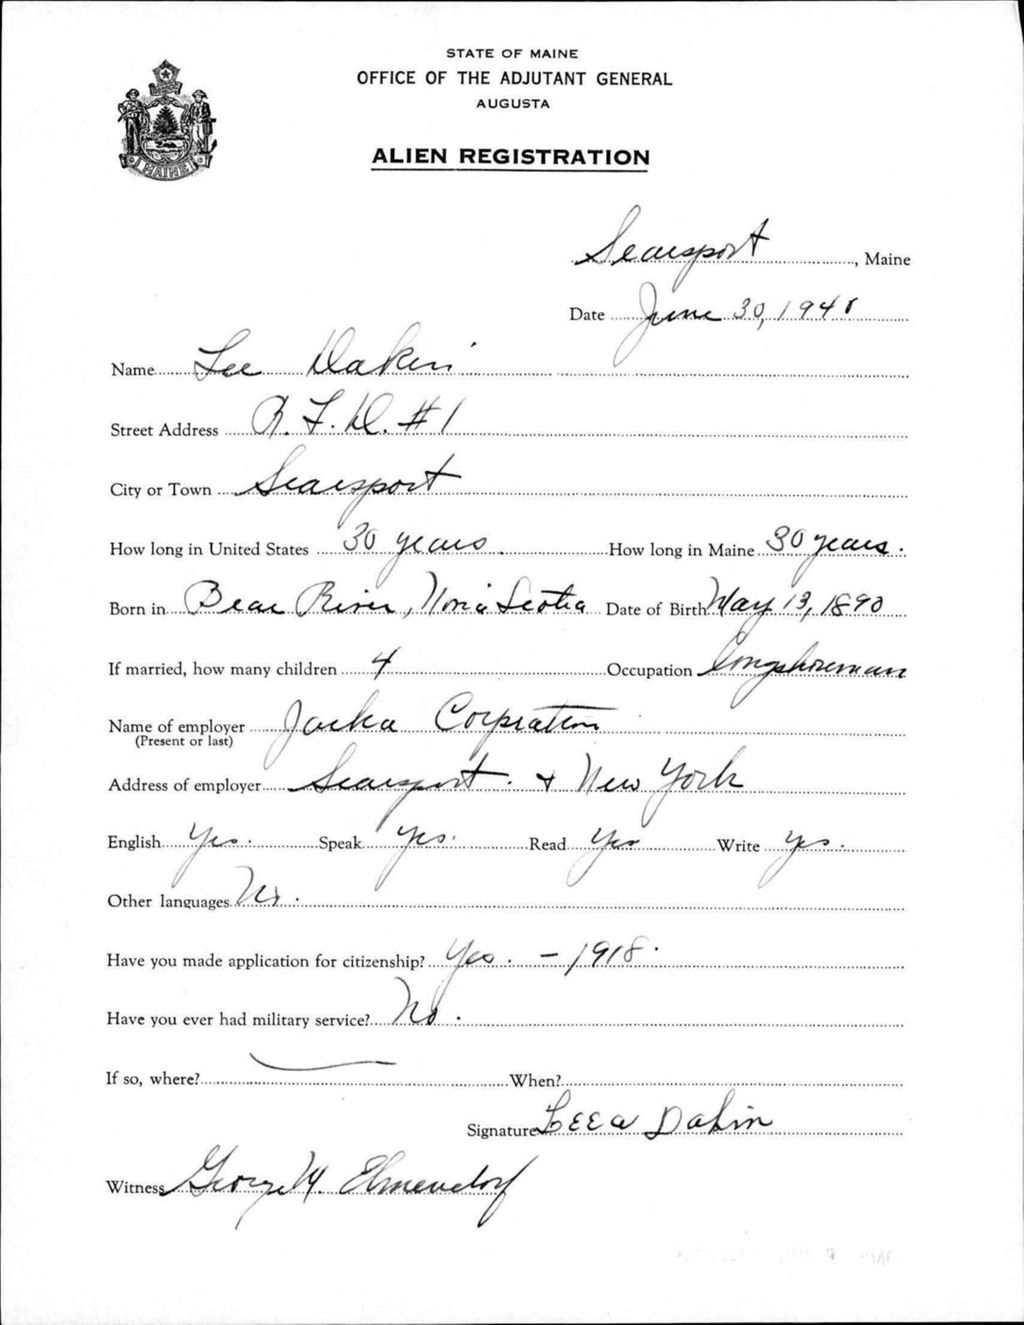 STATE OF MAINE
OFFICE OF THE ADJUTANT GENERAL
AUGUSTA
ALIEN REGISTRATION
MAINE
Searsport, Maine
Date June 30, 1940
Name Lee Dakin
Street Address R.F.D. #1
City or Town Searsport
How long in United States 30 years. How long in Maine 30 years.
Born in Bear River, Nova Scotia Date of Birth May 13, 1890
If married, how many children 4 Occupation Longshoreman
Name of employer Corpration
(Present or last)
Address of employer Searsport. + New York
English Yes. Speak Yes. Read Yes Write Yes.
Other languages No.
Have you made application for citizenship? Yes. - 1918.
Have you ever had military service? No.
If so, where? When?
Signature Lee a Dakin
Witness George M. Elmendorf